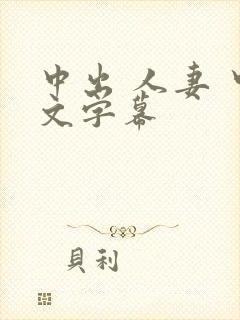 中出 人妻 中
文字幕
貝利